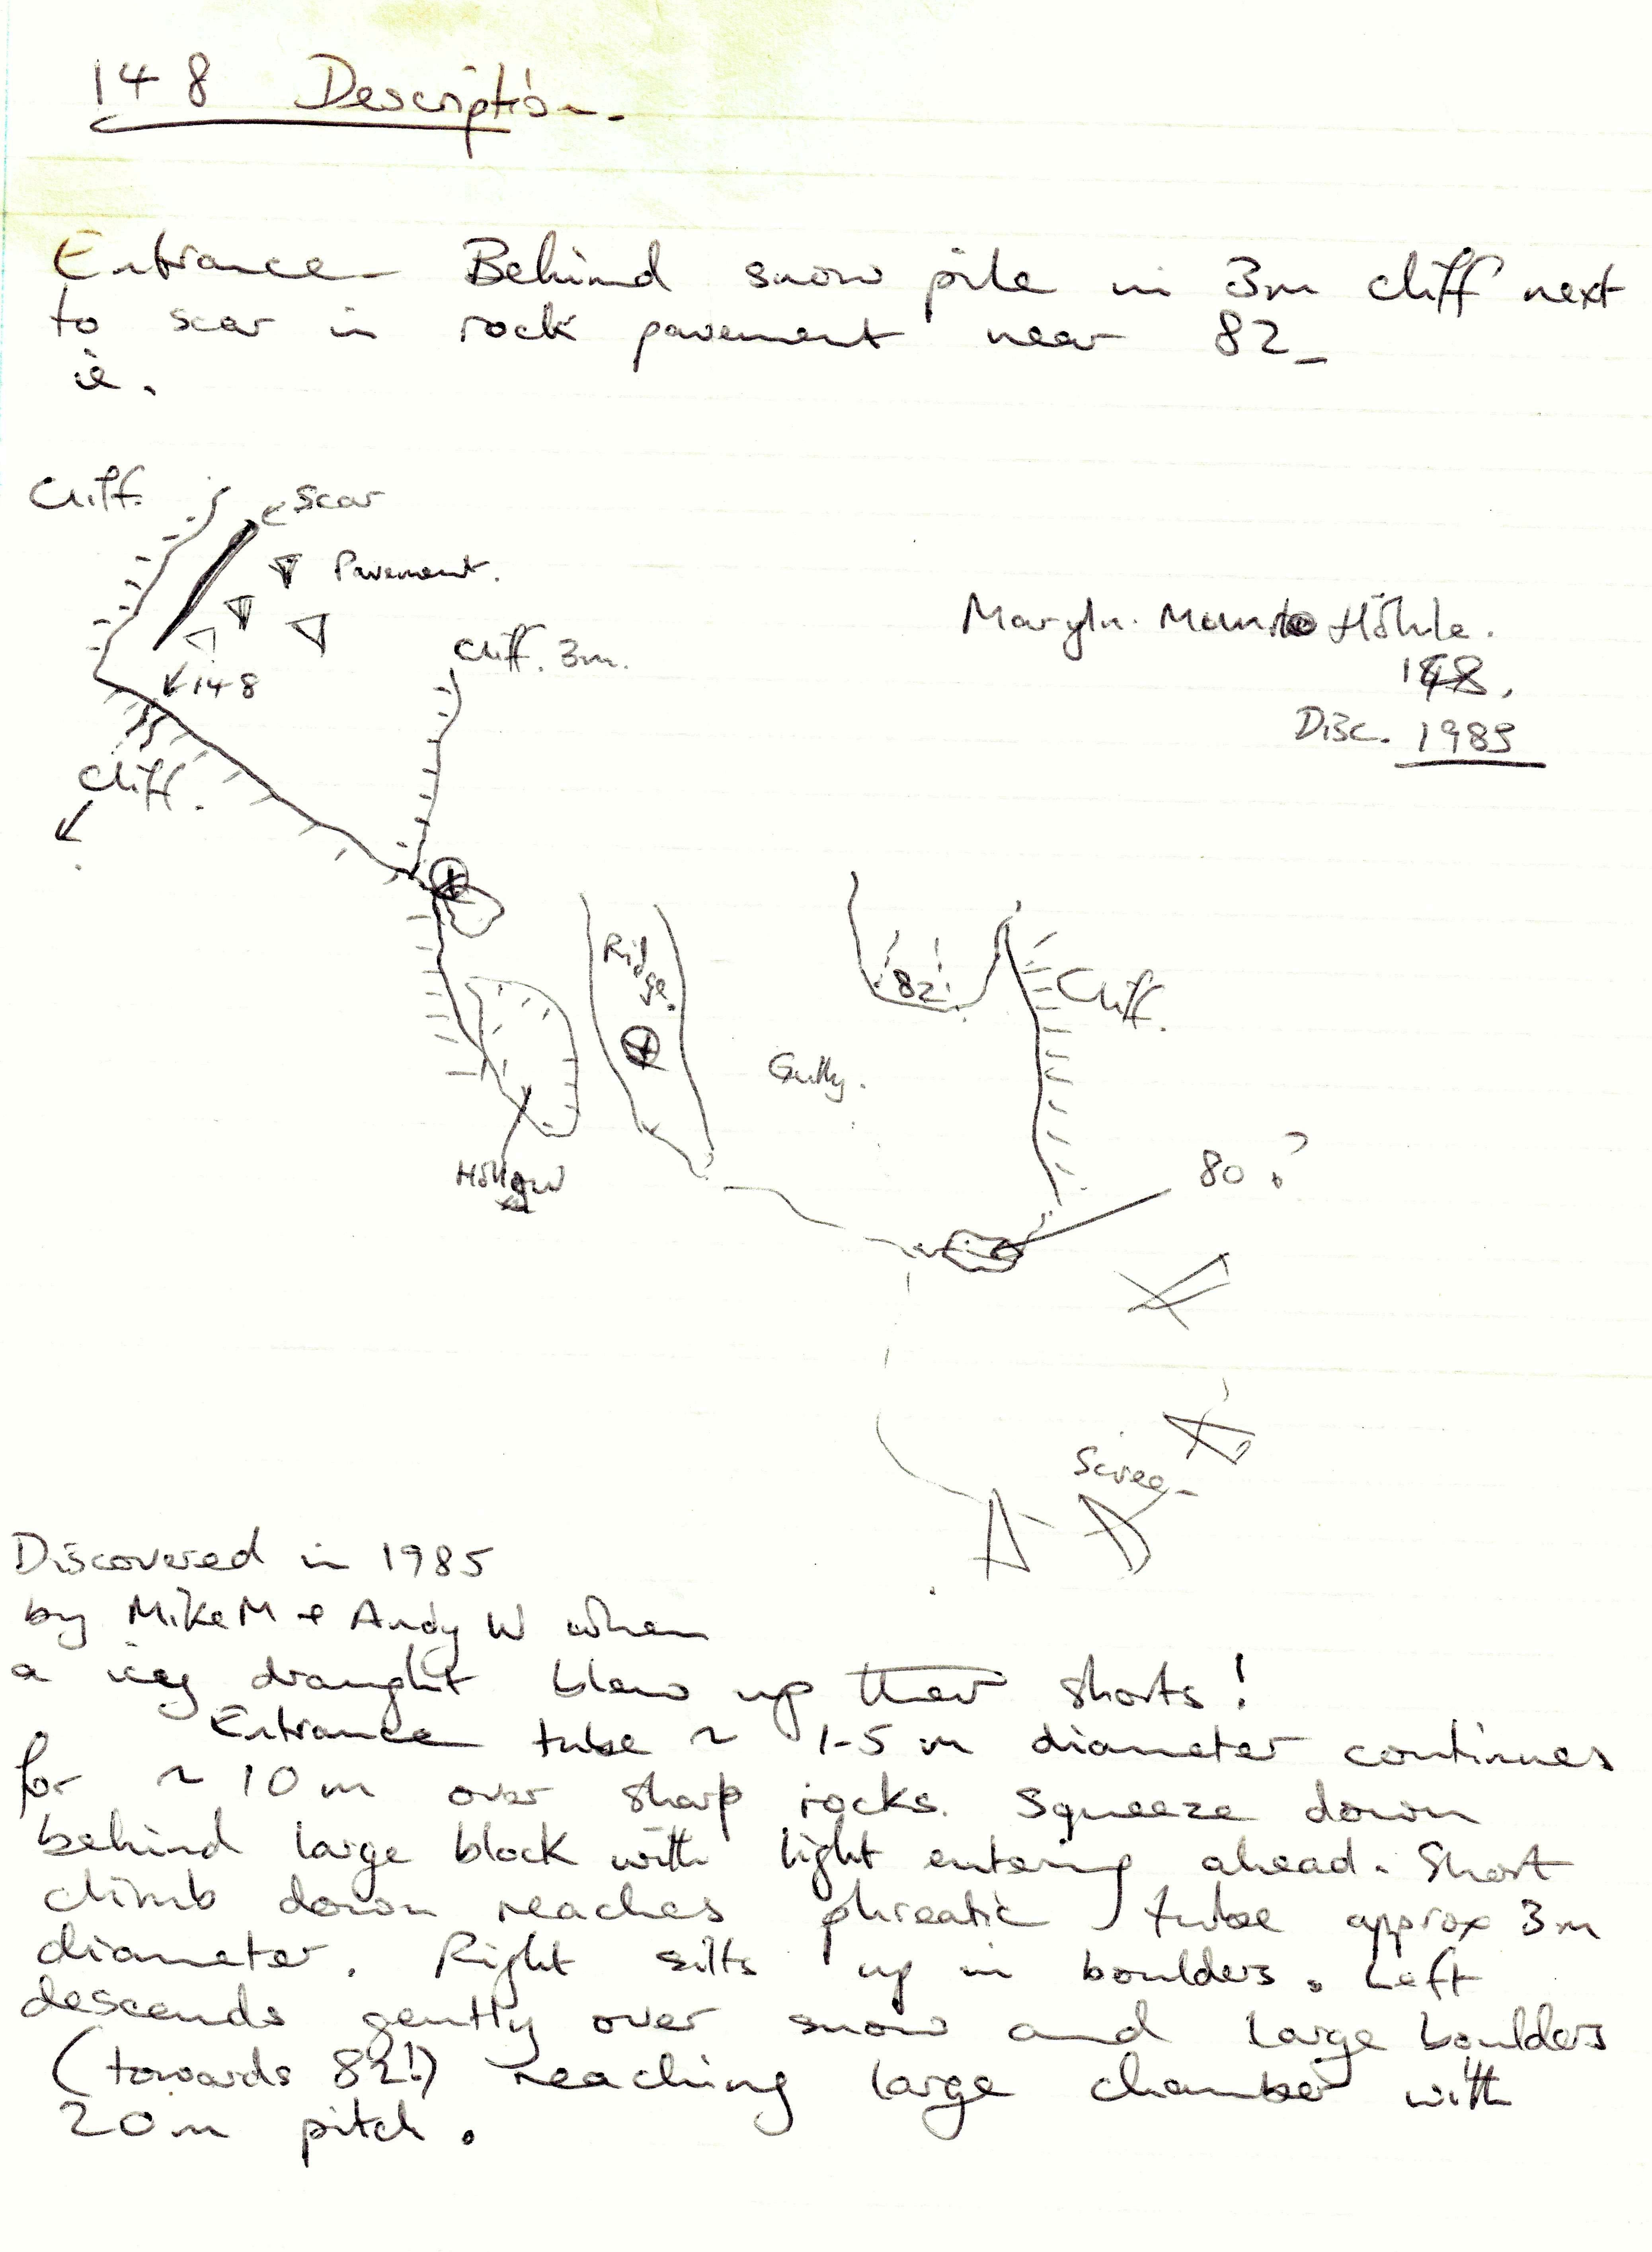 148 Description.
Entrance - Behind snow pile in 3m cliff next
to scar in rock pavement near 82 -
ie.
Cliff.
scar
Pavement.
Cliff. 3m.
148
Cliff.
Maryln. Munro Höhle.
148.
Disc. 1985
Ridge.
82
Cliff.
Gully.
Hollow
80 ?
Scree -
Discovered in 1985
by Mike M + Andy W when
a icey draught blew up their shorts!
Entrance tube ~ 1-5 m diameter continues
for ~ 10m over sharp rocks. Squeeze down
behind large block with light entering ahead. Short
climb down reaches phreatic tube approx 3m
diameter. Right silts up in boulders. Left
descends gently over snow and large boulders
(towards 82!) reaching large chamber with
20m pitch.